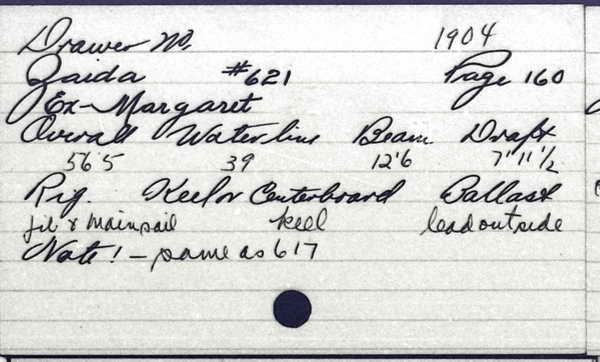 Drawer No. 1904
Zaida #621 Page 160
Ex-Margaret
Overall Waterline Beam Draft
56'5 39 12'6 7'11 1/2
Rig. Keel or Centerboard Ballast
jib & mainsail keel lead outside
Note! - same as 617